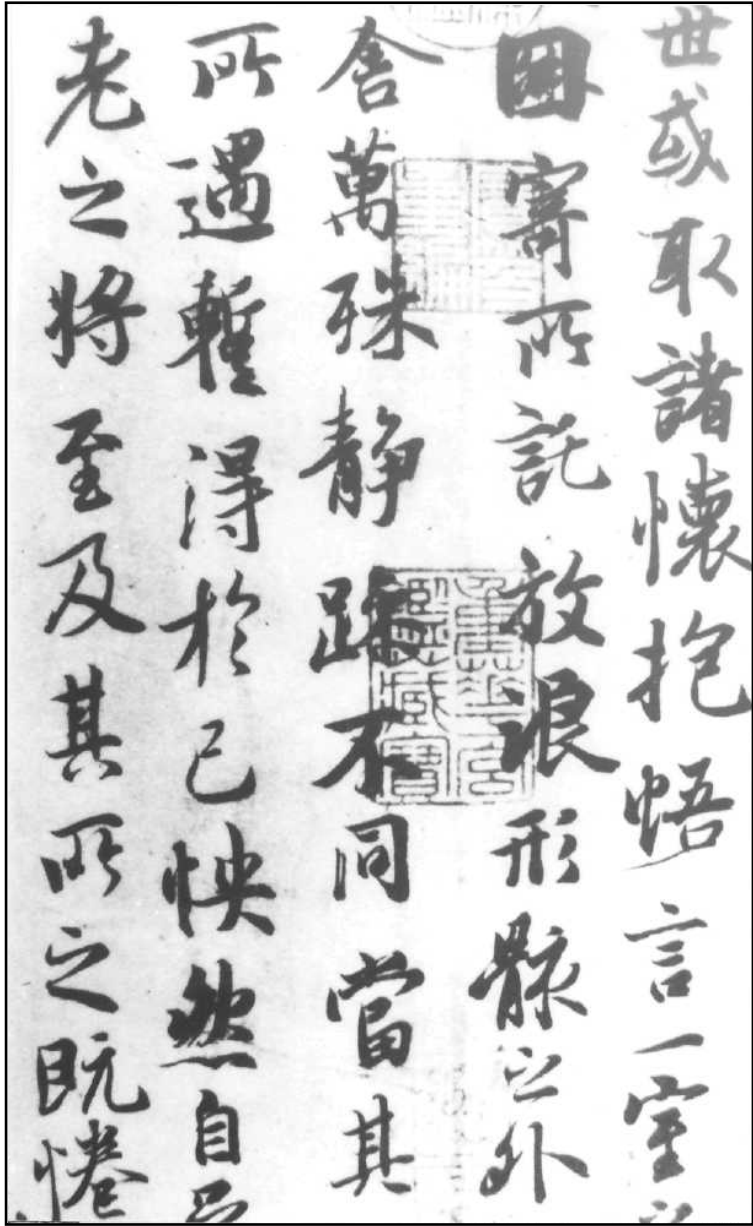 世或取諸懷抱悟言一室
因寄所託放浪形骸之外
舍萬殊靜躁不同當其
所遇暫得於己怏然自
老之將至及其所之既惓
重華宮鑑藏寶